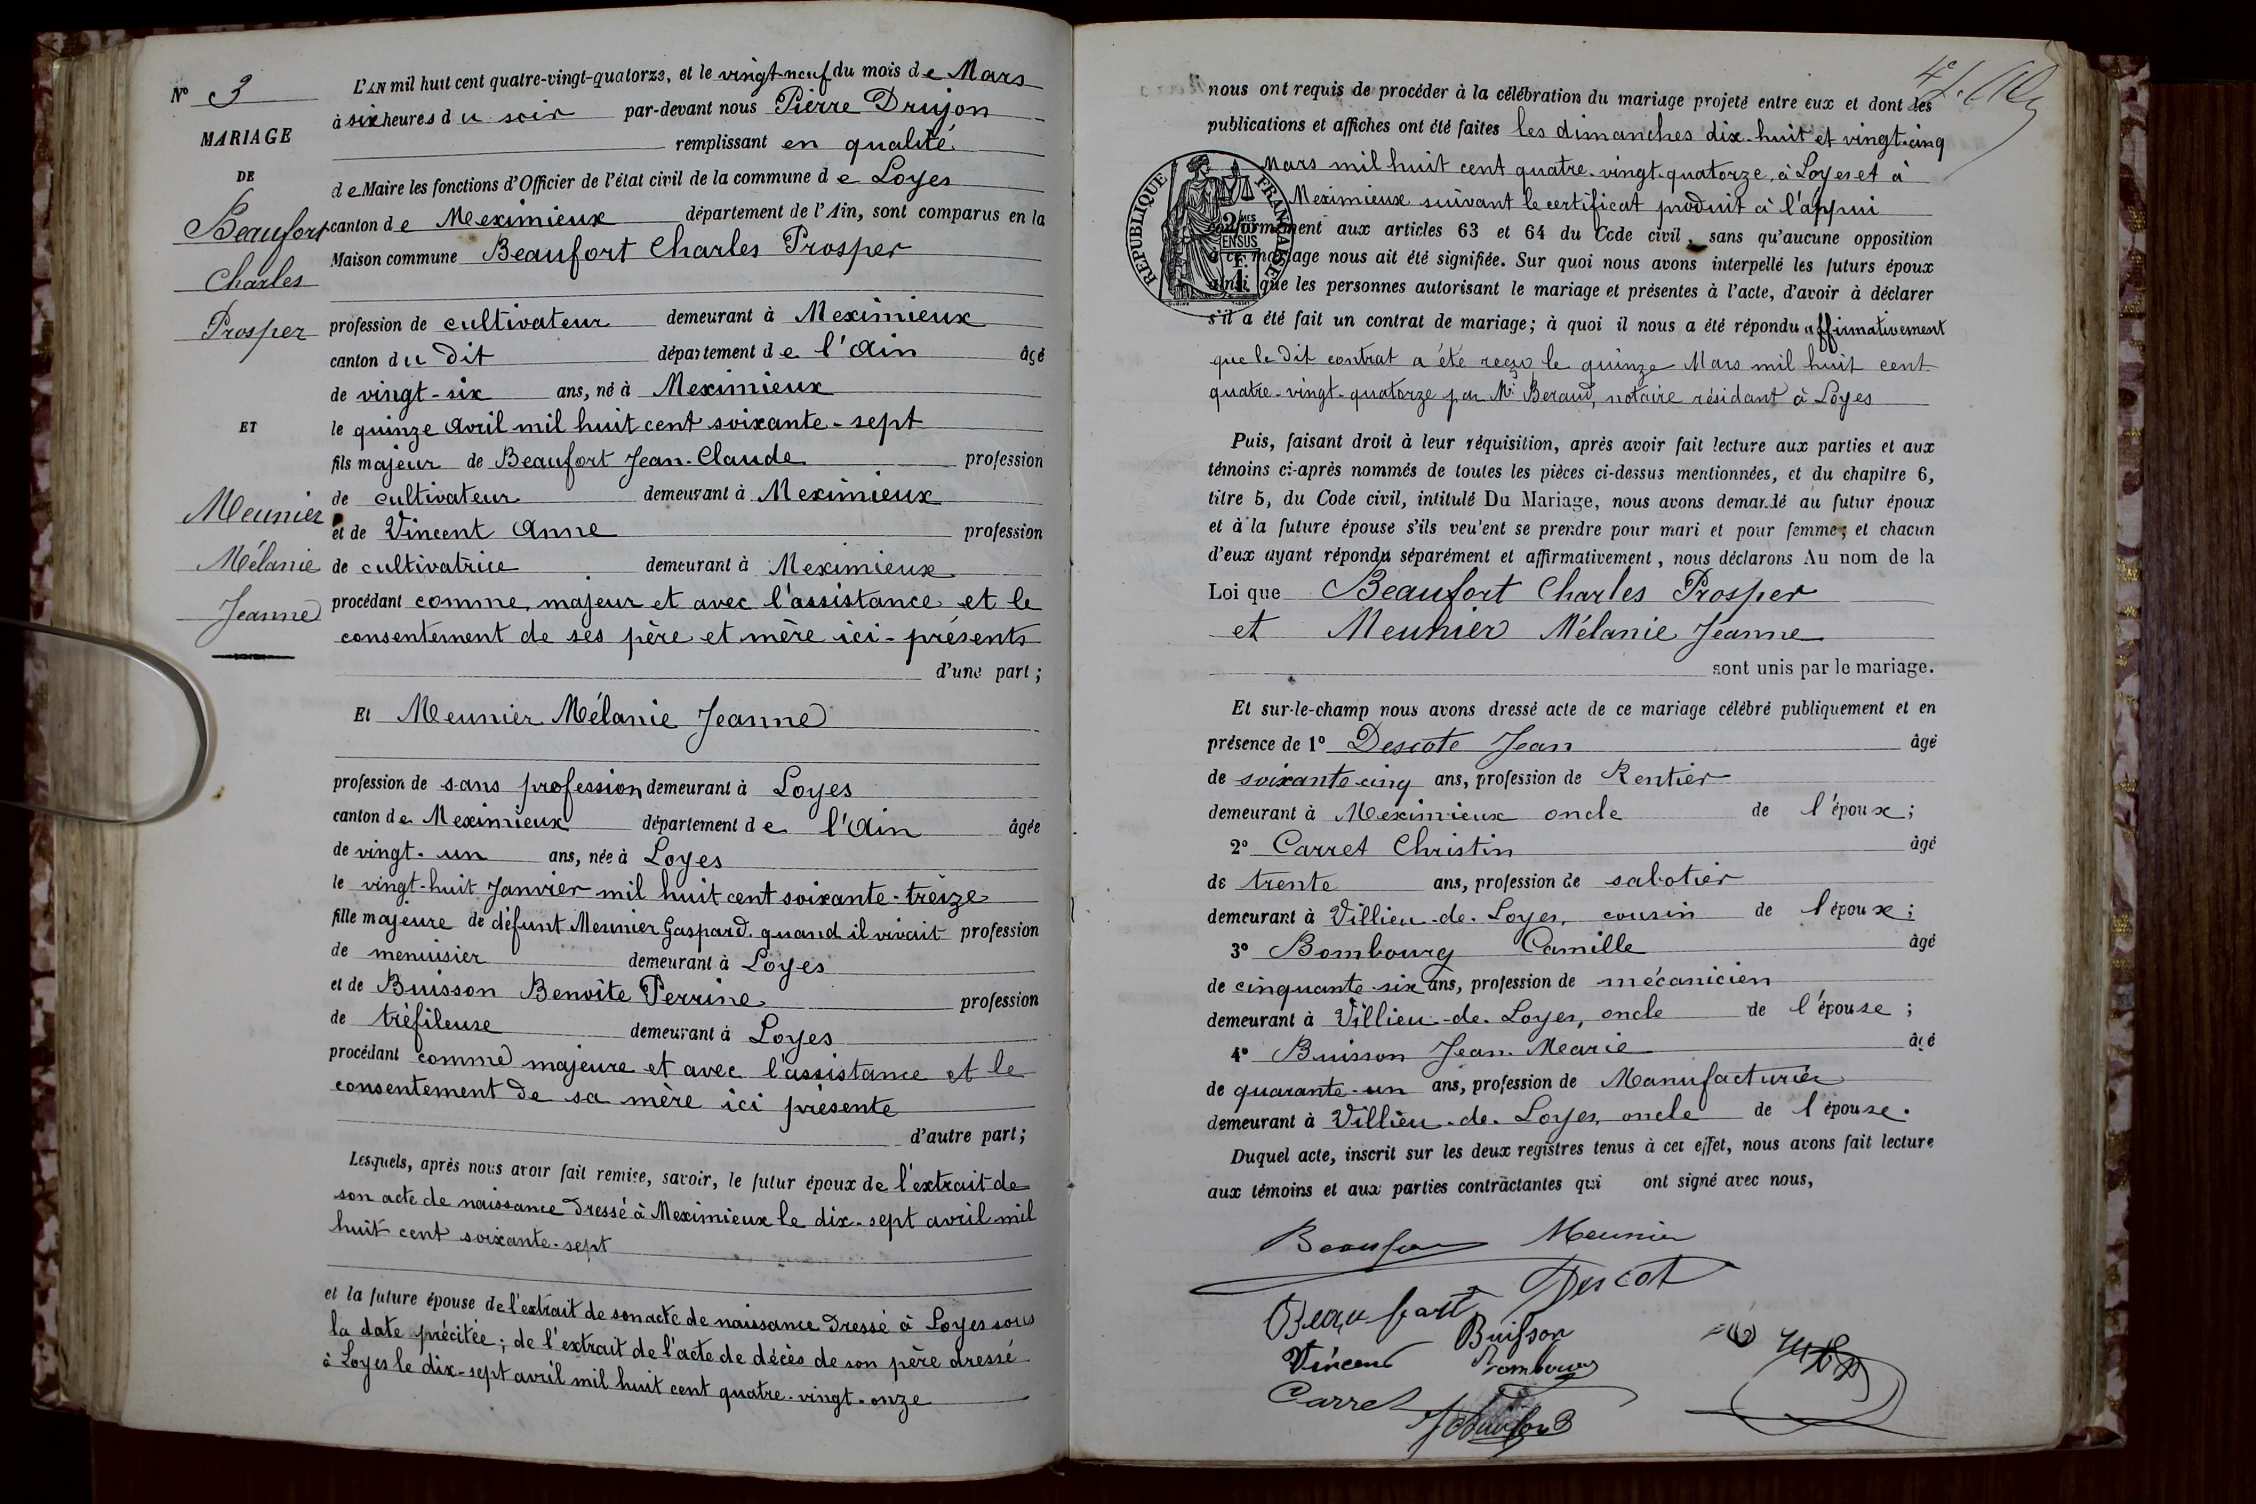 N° 3
MARIAGE
DE
Beaufort
Charles
Prosper
ET
Meunier
Mélanie
Jeanne
L'AN mil huit cent quatre-vingt-quatorze, et le vingt-neuf du mois de Mars
à six heures du soir par-devant nous Pierre Drujon
remplissant en qualité
de Maire les fonctions d'Officier de l'état civil de la commune de Loyes
canton de Meximieux département de l'Ain, sont comparus en la
Maison commune Beaufort Charles Prosper
profession de cultivateur demeurant à Meximieux
canton du dit département de l'Ain âgé
de vingt-six ans, né à Meximieux
le quinze avril mil huit cent soixante-sept
fils majeur de Beaufort Jean-Claude profession
de cultivateur demeurant à Meximieux
et de Vincent Anne profession
de cultivatrice demeurant à Meximieux
procédant comme majeur et avec l'assistance et le
consentement de ses père et mère ici-présents
d'une part ;
Et Meunier Mélanie Jeanne
profession de sans profession demeurant à Loyes
canton de Meximieux département de l'Ain âgée
de vingt-un ans, née à Loyes
le vingt-huit Janvier mil huit cent soixante-treize
fille majeure de défunt Meunier Gaspard quand il vivait profession
de menuisier demeurant à Loyes
et de Buisson Benoîte Perrine profession
de tréfileuse demeurant à Loyes
procédant comme majeure et avec l'assistance et le
consentement de sa mère ici présente
d'autre part ;
Lesquels, après nous avoir fait remise, savoir, le futur époux de l'extrait de
son acte de naissance dressé à Meximieux le dix-sept avril mil
huit cent soixante-sept
et la future épouse de l'extrait de son acte de naissance dressé à Loyes sous
la date précitée ; de l'extrait de l'acte de décès de son père dressé
à Loyes le dix-sept avril mil huit cent quatre-vingt-onze
nous ont requis de procéder à la célébration du mariage projeté entre eux et dont les
publications et affiches ont été faites les dimanches dix-huit et vingt-cinq
Mars mil huit cent quatre-vingt-quatorze, à Loyes et à
Meximieux suivant le certificat produit à l'appui
RÉPUBLIQUE FRANÇAISE
conformément aux articles 63 et 64 du Code civil, sans qu'aucune opposition
à ce mariage nous ait été signifiée. Sur quoi nous avons interpellé les futurs époux
ainsi que les personnes autorisant le mariage et présentes à l'acte, d'avoir à déclarer
s'il a été fait un contrat de mariage ; à quoi il nous a été répondu affirmativement
que le dit contrat a été reçu le quinze Mars mil huit cent
quatre-vingt-quatorze par Me Beraud, notaire résidant à Loyes
Puis, faisant droit à leur réquisition, après avoir fait lecture aux parties et aux
témoins ci-après nommés de toutes les pièces ci-dessus mentionnées, et du chapitre 6,
titre 5, du Code civil, intitulé Du Mariage, nous avons demandé au futur époux
et à la future épouse s'ils veulent se prendre pour mari et pour femme ; et chacun
d'eux ayant répondu séparément et affirmativement, nous déclarons Au nom de la
Loi que Beaufort Charles Prosper
et Meunier Mélanie Jeanne
sont unis par le mariage.
Et sur-le-champ nous avons dressé acte de ce mariage célébré publiquement et en
présence de 1° Descote Jean âgé
de soixante-cinq ans, profession de Rentier
demeurant à Meximieux oncle de l'époux ;
2° Carret Christin âgé
de trente ans, profession de sabotier
demeurant à Villieu-de-Loyes, cousin de l'époux ;
3° Bombourg Camille âgé
de cinquante-six ans, profession de mécanicien
demeurant à Villieu-de-Loyes, oncle de l'épouse ;
4° Buisson Jean-Marie âgé
de quarante-un ans, profession de Manufacturier
demeurant à Villieu-de-Loyes, oncle de l'épouse.
Duquel acte, inscrit sur les deux registres tenus à cet effet, nous avons fait lecture
aux témoins et aux parties contractantes qui ont signé avec nous,
Meunier
Beaufort Descot
Buisson
Vincent Bombourg
Carret